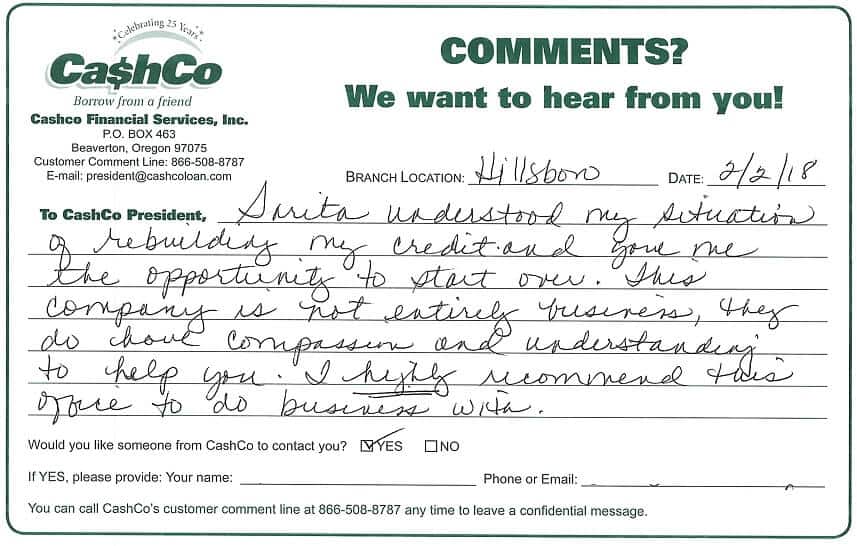 Celebrating 25 Years
Ca$hCo
Borrow from a friend
Cashco Financial Services, Inc.
P.O. BOX 463
Beaverton, Oregon 97075
Customer Comment Line: 866-508-8787
E-mail: president@cashcoloan.com
COMMENTS?
We want to hear from you!
BRANCH LOCATION: Hillsboro DATE: 2/2/18
To CashCo President, Sarita understood my situation
of rebuilding my credit and gave me
the opportunity to start over. This
company is not entirely business, they
do have compassion and understanding
to help you. I highly recommend this
office to do business with.
Would you like someone from CashCo to contact you? YES NO
If YES, please provide: Your name: Phone or Email:
You can call CashCo's customer comment line at 866-508-8787 any time to leave a confidential message.